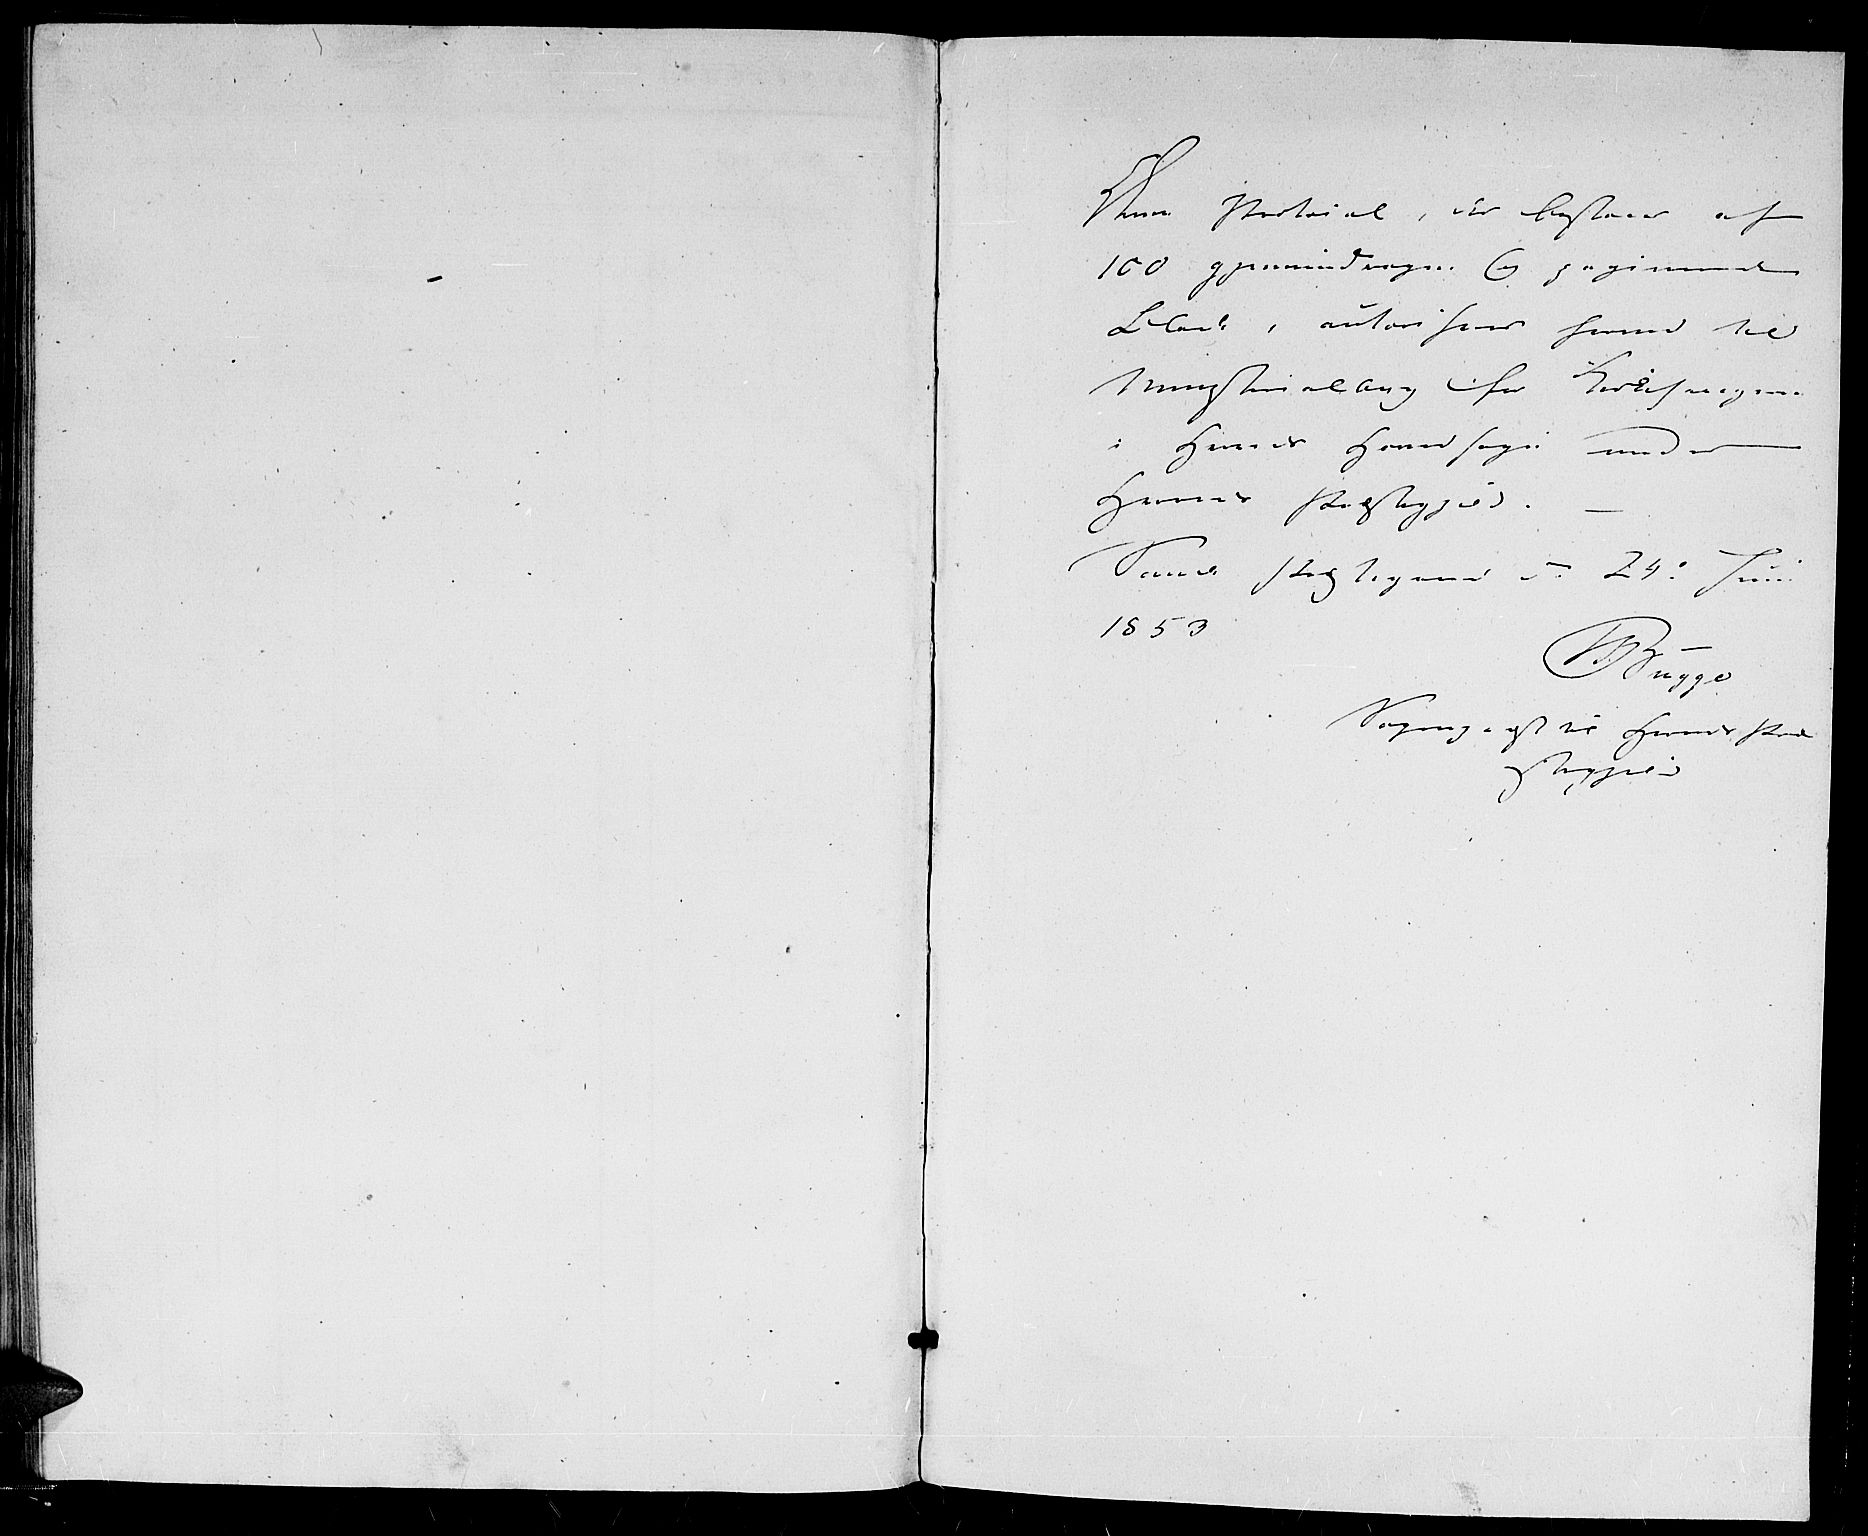 Denne Protocol, der bestaaer af
100 gjennemdragne og paginerede
Blade, autoriseres herved til
Ministerialbog for Kirkesangeren
i Herred Hovedsogn under
Herreds Præstegjeld. —
Sande Præstegaard d. 24: Juni
1853
Bugge
Sogneprest til Herreds Præ
stegjeld